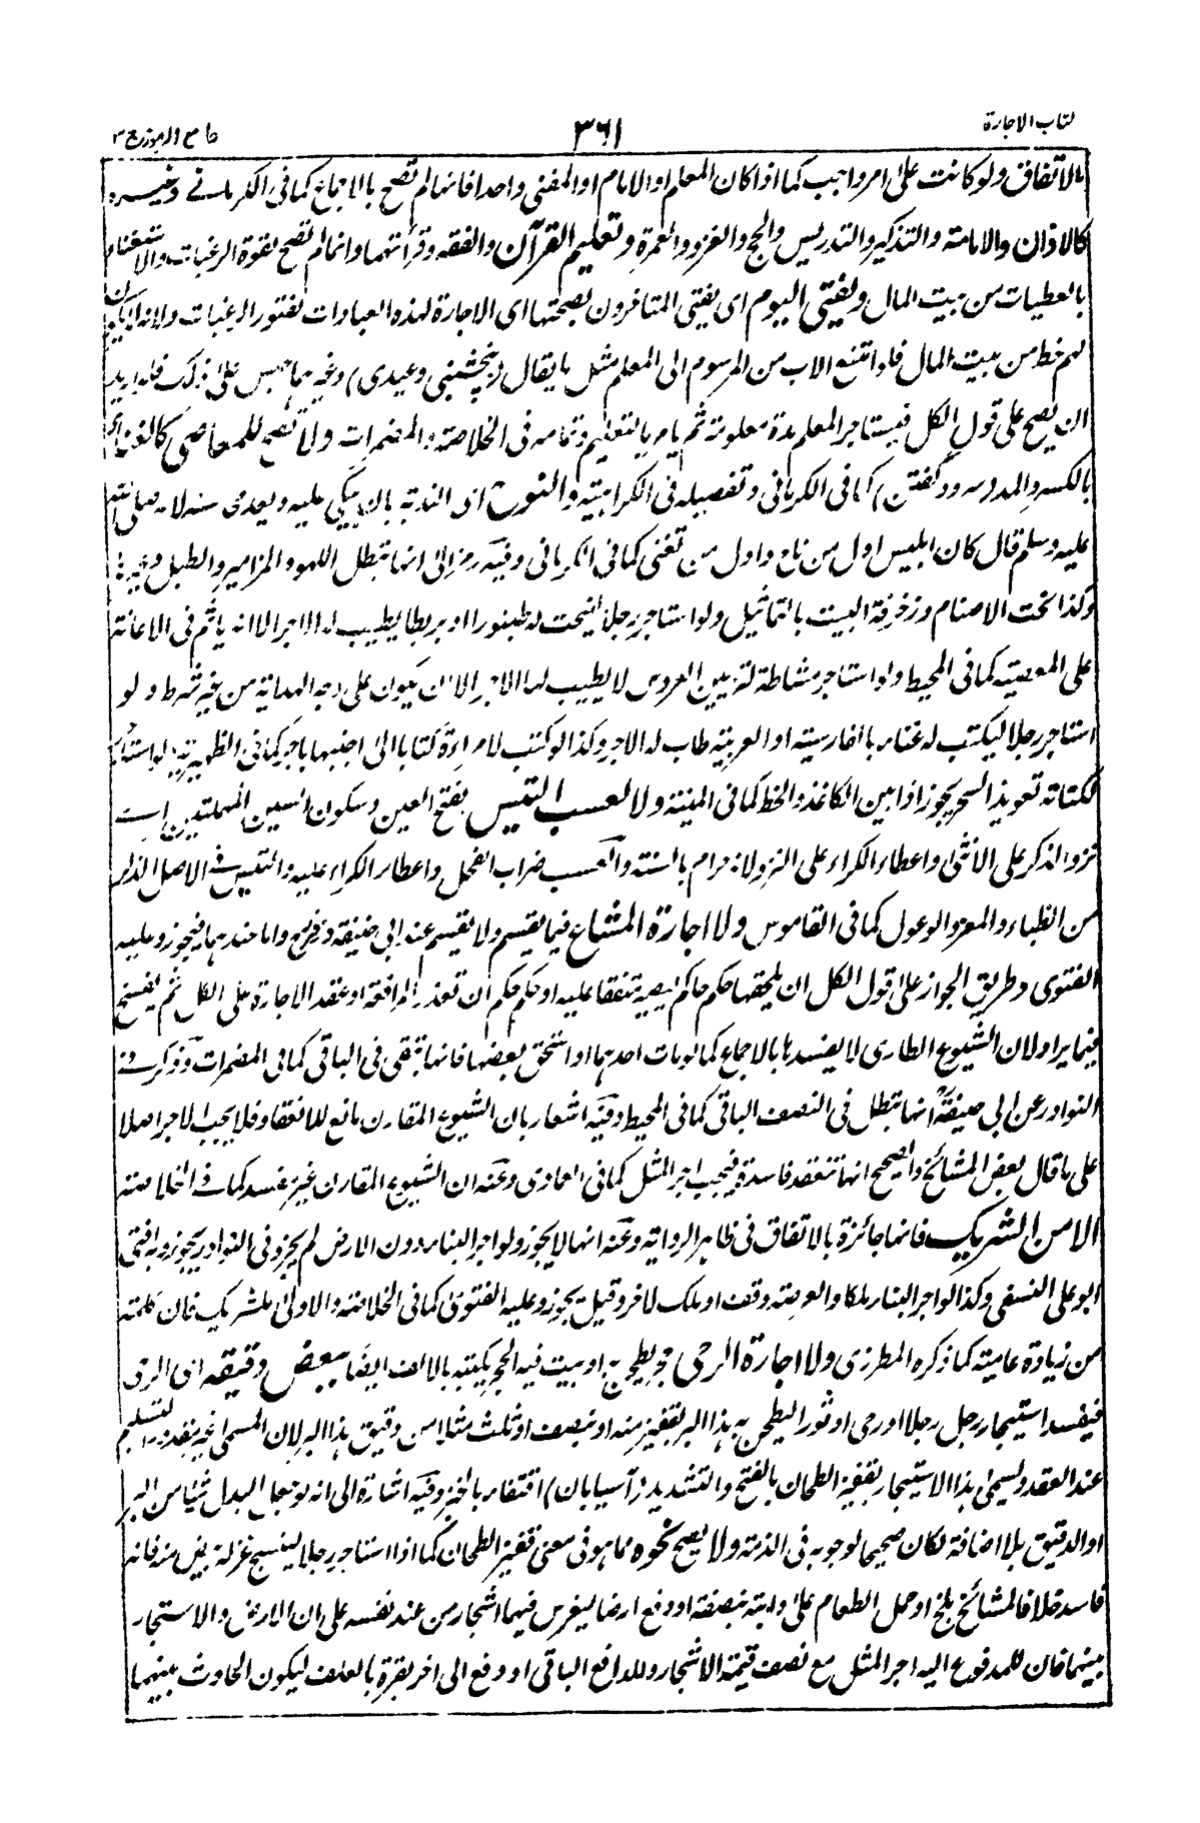 كتاب الاجارة
٣٦١
جامع الرموز ج ٣
بالاتفاق ولو كانت على امر واجب كما اذا كان المعلم او الامام او المفتى واحدا فانها لم تصح بالاجماع كما فى الكرمانى وغيره
كالاذان والامامة والتذكير والتدريس والحج والغزو والعمرة وتعليم القرآن والفقه وقرأتهما وانما لم تصح لقوة الرغبات والاستغناء
بالعطيات من بيت المال ويفتى اليوم اى يفتى المتاخرون بصحتها اى الاجارة لهذه العبادات لفتور الرغبات ولانه لم يكن
لهم حظ من بيت المال فلو امتنع الاب من المرسوم الى المعلم مثل ما يقال (پنجشنبى وعيدى) وغيرهما حبس على ذلك فلو اريد
ان يصح على قول الكل فيستاجر المعلم مدة معلومة ثم يامر بالتعليم وتمامه فى الخلاصة والمضمرات ولا تصح للمعاصى كالغناء
بالكسر والمد (سرود گفتن) كما فى الكرمانى وتفصيله فى الكراهية والنوح اى الندبة بان يبكى عليه ويعدى سنه لانه صلى الله
عليه وسلم قال كان ابليس اول من ناح واول من تغنى كما فى الكرمانى وفيه رمز الى انها تبطل اللهو والمزامير والطبل وغيره
وكذا نحت الاصنام وزخرفة البيت بالتماثيل ولو استاجر رجلا لينحت له طنبورا او بربطا يطيب له الاجر الا انه ياثم فى الاعانة
على المعصية كما فى المحيط ولو استاجر مشاطة لتزيين العروس لا يطيب لها الاجر الا ان يكون على وجه الهداية من غير شرط ولو
استاجر رجلا ليكتب له غناء بالفارسية او العربية طاب له الاجر وكذا لو كتب لامرءة كتابا الى اجنبها باجر كما فى الظهيرية ولو استاجر
لكتابة تعويذ السحر يجوز اذا بين الكاغذ والخط كما فى المنية ولا لعسب التيس بفتح العين وسكون السين المهملتين اى
نزو الذكر على الانثى او اعطاء الكراء على النزو لانه حرام بالسنة والعسب ضراب الفحل واعطاء الكراء عليه والتيس فى الاصل الذكر
من الظباء والمعز والوعول كما فى القاموس ولا اجارة المشاع فيما يقسم ولا يقسم عند ابى حنيفة وزفر واما عندهما فيجوز وعليه
الفتوى وطريق الجواز على قول الكل ان يلحقها حكم حاكم ليصير متفقا عليه او حكم حكم ان تعذر المرافعة او عقد الاجارة على الكل ثم يفسخ
فيما يراد لان الشيوع الطارى لا يفسدها بالاجماع كما لو مات احدهما او استحق بعضها فانها تبقى فى الباقى كما فى المضمرات وذكر فى
النوادر عن ابى حنيفة انها تبطل فى النصف الباقى كما فى المحيط وفيه اشعار بان الشيوع المقارن مانع للانعقاد فلا يجب الاجر اصلا
على ما قال بعض المشائخ والصحيح انها تنعقد فاسدة فيجب اجر المثل كما فى العمادى وعنه ان الشيوع المقارن غير مفسد كما فى الخلاصة
الا من الشريك فانها جائزة بالاتفاق فى ظاهر الرواية وعنه انها لا يجوز ولو اجر البناء دون الارض لم يجز وفى النوادر يجوز وبه افتى
ابو على النسفى وكذا لو اجر البناء ملكا والعرصة وقف او ملك لاخر وقيل يجوز وعليه الفتوى كما فى الخلاصة والاولى بلشريك فان كلمة
من زيادة عامية كما ذكره المطرزى ولا اجارة الرحى حجر يطحن به او بيت فيه الحجر يكتب بالالف ايضا ببعض دقيقه اى الرق
فيفسد استيجار رجل رجلا او رحى او ثور اليطحن به هذا البر بقفيز منه او نصف او ثلث مثلا من دقيق هذا البر لان المسمى غير مقدور التسليم
عند العقد ويسمى هذا الاستيجار بقفيز الطحان بالفتح والتشديد (آسيابان) اقتفاء بالخبر وفيه اشارة الى انه لو جعلا البدل شيئا من البر
او الدقيق بلا اضافة لكان صحيحا لوجوبه فى الذمة ولا يصح نحوه مما هو فى معنى قفيز الطحان كما اذا استاجر رجلا لينسج غزله ببعض منه فانه
فاسد خلافا لمشائخ بلخ او حمل الطعام على دابة بنصفه او دفع ارضا ليغرس فيها اشجار من عند نفسه على ان الارض والاشجار
بينهما فان للمدفوع اليه اجر المثل مع نصف قيمة الاشجار وللدافع الباقى او دفع الى اخر بقرة بالعلف ليكون الحادث بينهما